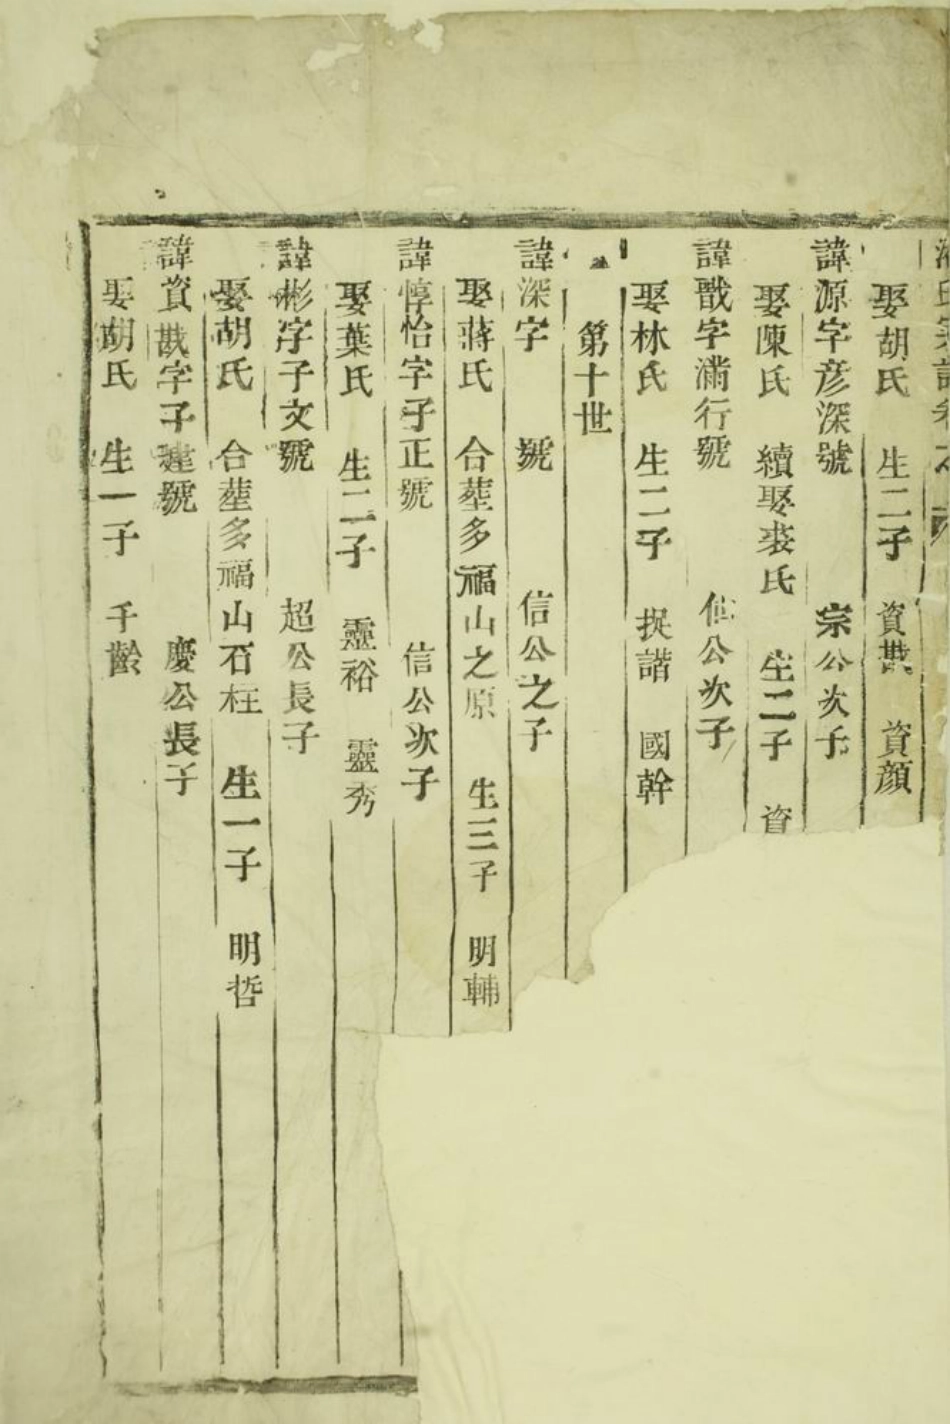 氏宗譜卷之
娶胡氏 生二子 資戡 資顔
諱源字彦深號 宗公次子
娶陳氏 續娶裘氏 生二子 資
諱戩字滿行號 公次子
娶林氏 生二子 採諧 國幹
第十世
諱深字 號 信公之子
娶蔣氏 合塟多福山之原 生三子 明輔
諱惇怡字子正號 信公次子
娶葉氏 生二子 靈裕 靈秀
諱彬字子文號 超公長子
娶胡氏 合塟多福山石枉 生一子 明哲
諱資戡字子建號 慶公長子
娶胡氏 生一子 千齡